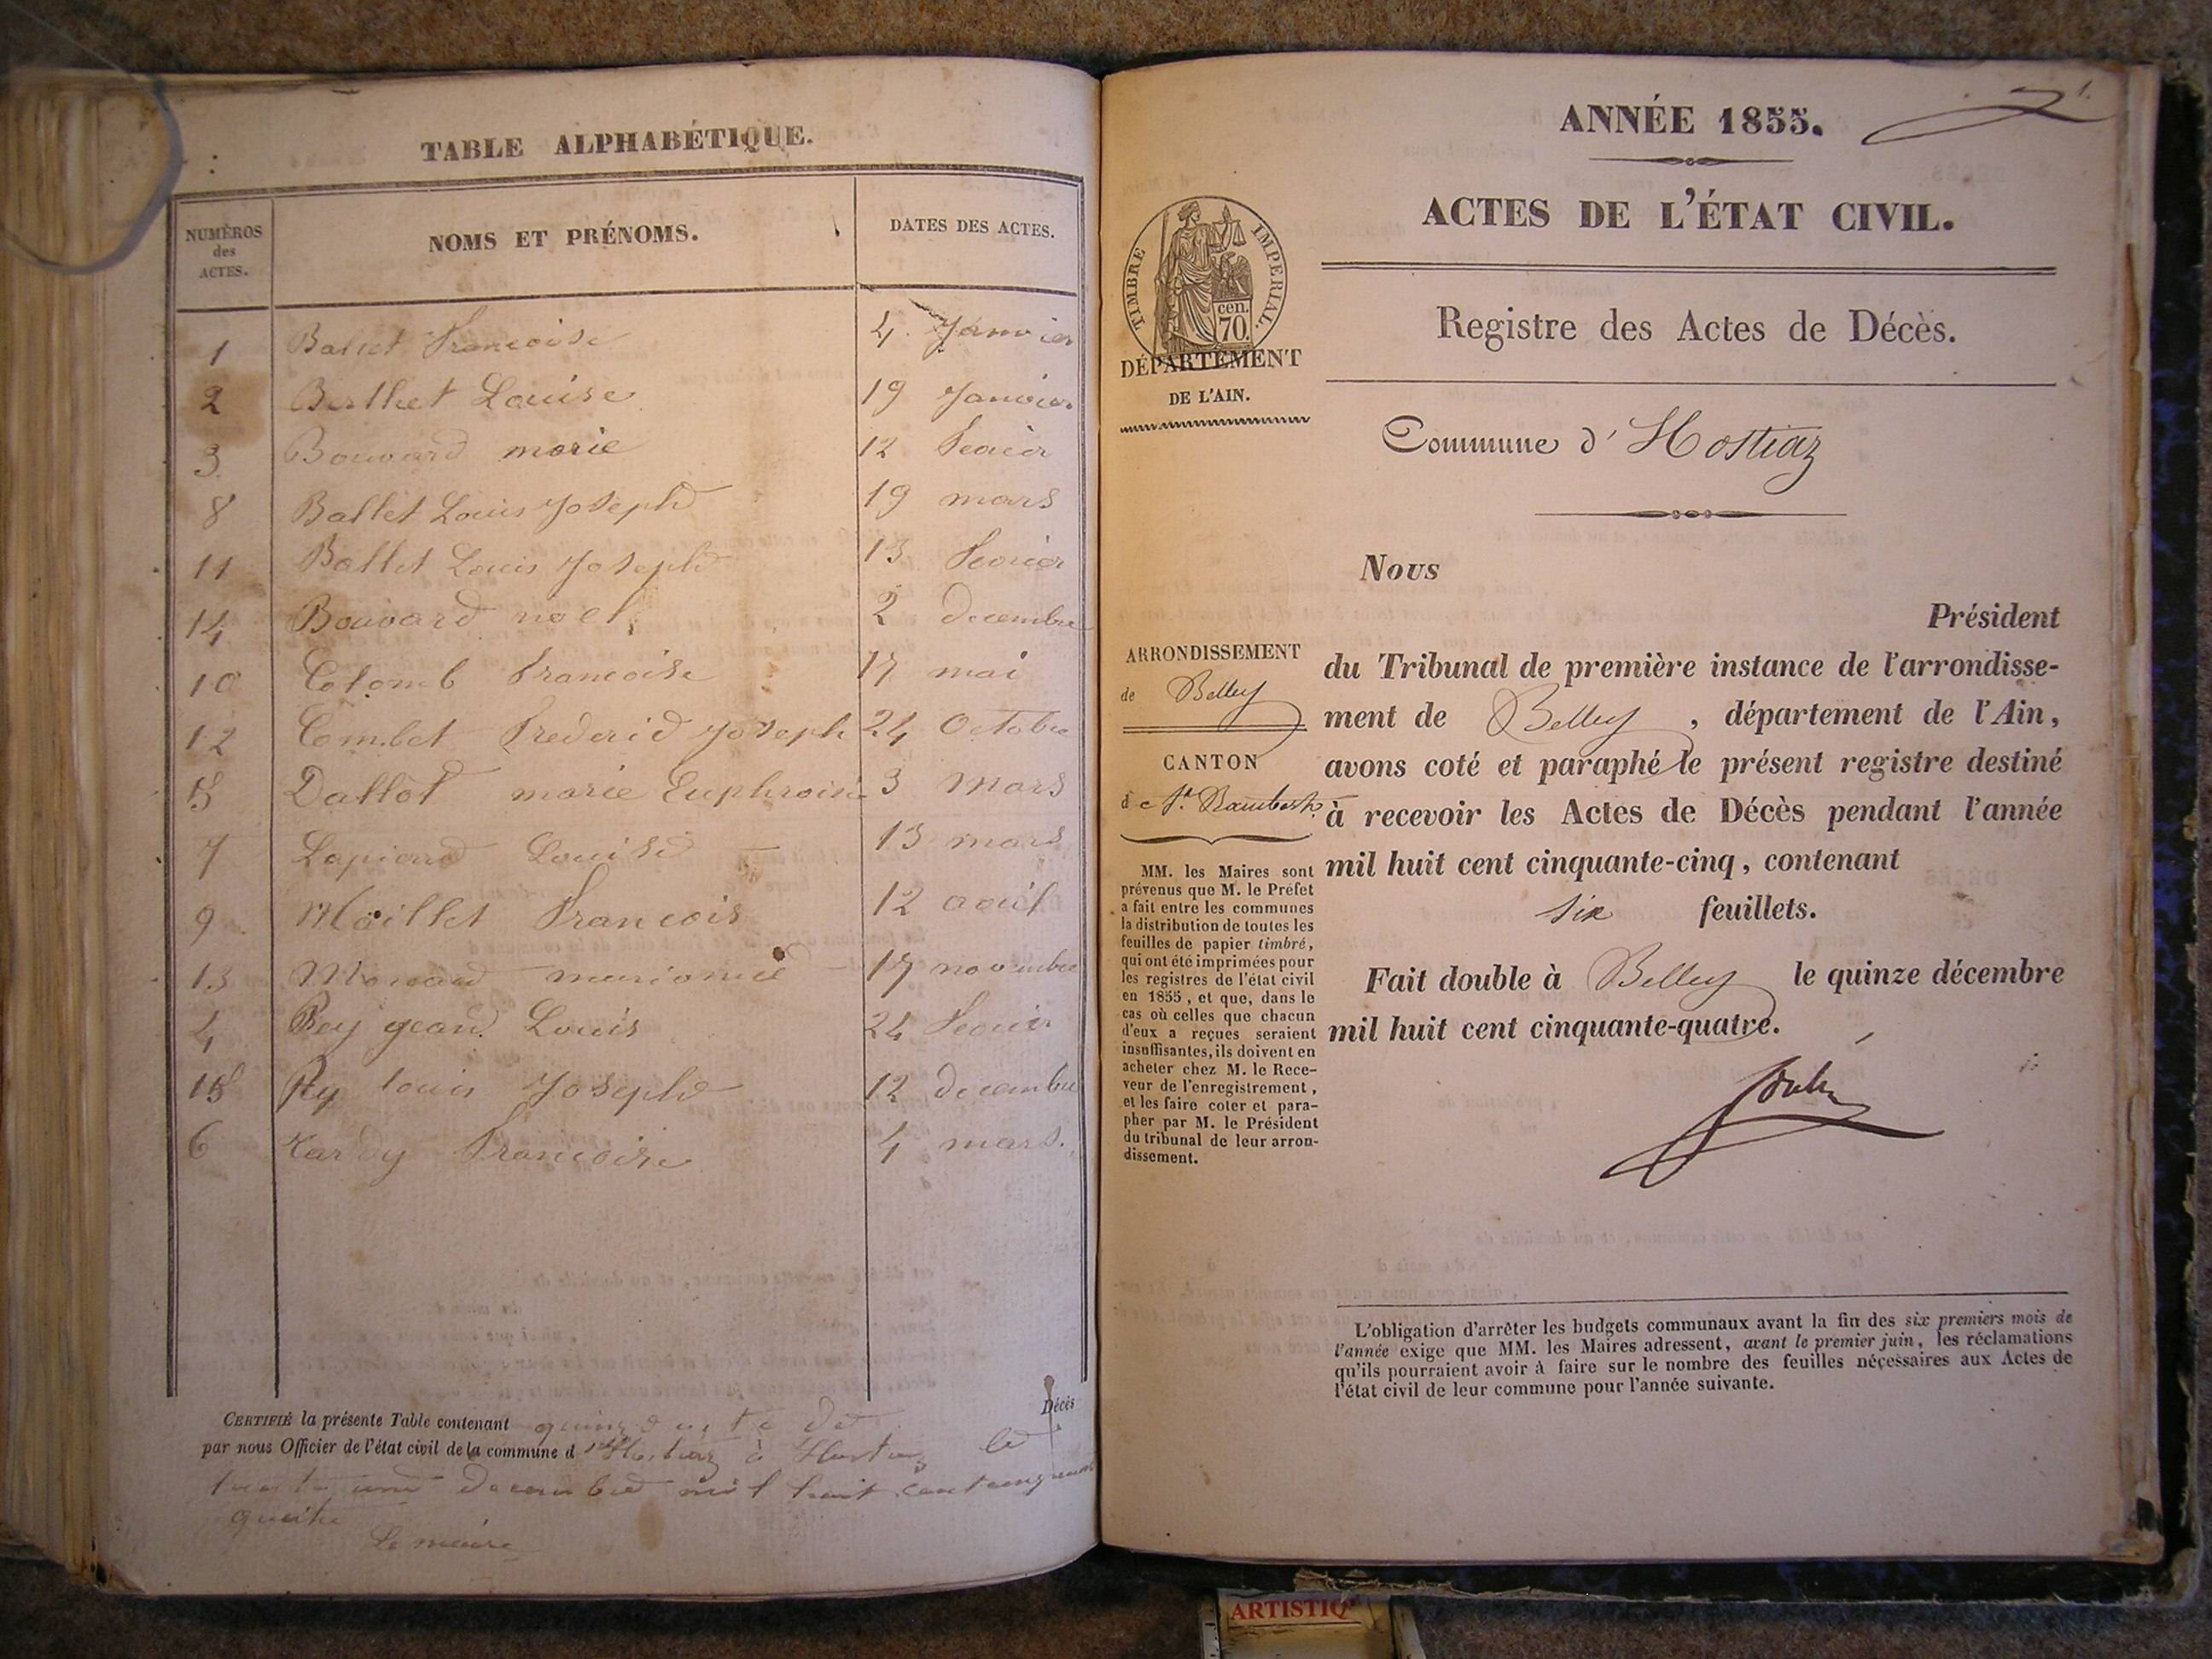 TABLE ALPHABÉTIQUE.
NUMÉROS des ACTES.
NOMS ET PRÉNOMS.
DATES DES ACTES.
1 Ballet Francoise 4 Janvier
2 Berthet Louise 19 Janvier
3 Bouvard marie 12
8 Ballet Louis Joseph 19 mars
11 Ballet Louis Joseph 13
14 Bouvard noel 2 decembre
10 Colomb Francoise 17 mai
12 Combet Frederic Joseph 24 Octobre
Dallot marie Euphroisie 3 Mars
7 Louise 13 mars
9 Francois 12
13 17 novembre
4 Rey Louis 24
15 Rey louis Joseph 12 decembre
6 Tardy Francoise 4 mars.
CERTIFIÉ la présente Table contenant Décès
par nous Officier de l'état civil de la commune d'hostiaz à Hostiaz le
trente un decembre mil huit cent cinquante
Le maire
ANNÉE 1855.
1.
ACTES DE L'ÉTAT CIVIL.
TIMBRE IMPERIAL.
cen.
70.
DÉPARTEMENT
DE L'AIN.
Registre des Actes de Décès.
Commune d'Hostiaz
ARRONDISSEMENT
de Belley
CANTON
de St. Rambert
MM. les Maires sont
prévenus que M. le Préfet
a fait entre les communes
la distribution de toutes les
feuilles de papier timbré,
qui ont été imprimées pour
les registres de l'état civil
en 1855, et que, dans le
cas où celles que chacun
d'eux a reçues seraient
insuffisantes, ils doivent en
acheter chez M. le Rece-
veur de l'enregistrement,
et les faire coter et para-
pher par M. le Président
du tribunal de leur arron-
dissement.
Nous
Président
du Tribunal de première instance de l'arrondisse-
ment de Belley, département de l'Ain,
avons coté et paraphé le présent registre destiné
à recevoir les Actes de Décès pendant l'année
mil huit cent cinquante-cinq, contenant
six feuillets.
Fait double à Belley le quinze décembre
mil huit cent cinquante-quatre.
L'obligation d'arrêter les budgets communaux avant la fin des six premiers mois de
l'année exige que MM. les Maires adressent, avant le premier juin, les réclamations
qu'ils pourraient avoir à faire sur le nombre des feuilles nécessaires aux Actes de
l'état civil de leur commune pour l'année suivante.
ARTISTIQ